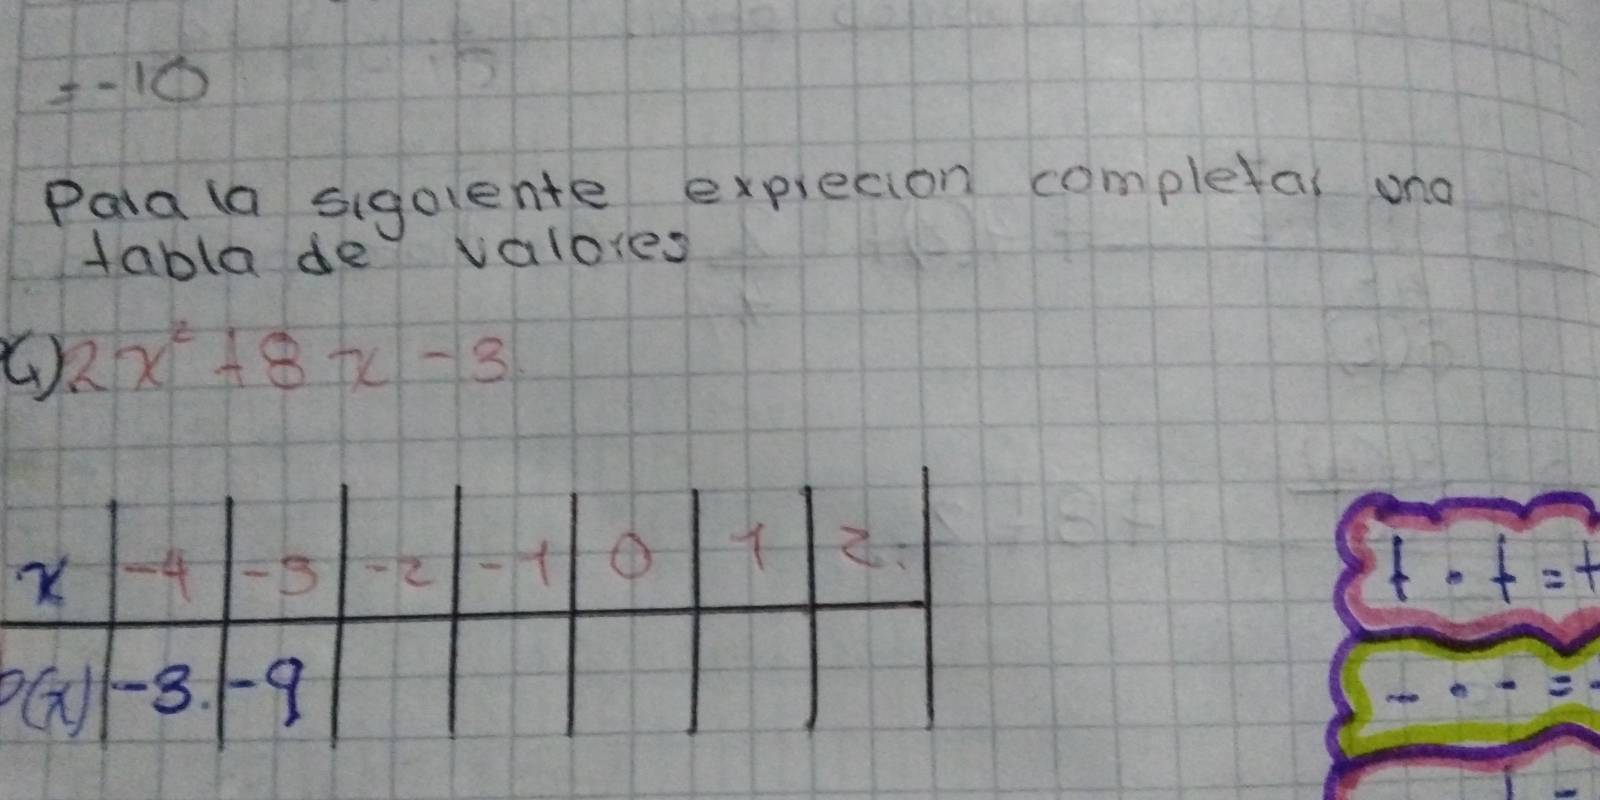 = -10
Para la siguiente exprecion completar una
tabla de valores
G) 2x² + 8x - 3
x | -4 | -3 | -2 | -1 | 0 | 1 | 2.
P(x) | -3. | -9
+ · + = +
- · - =